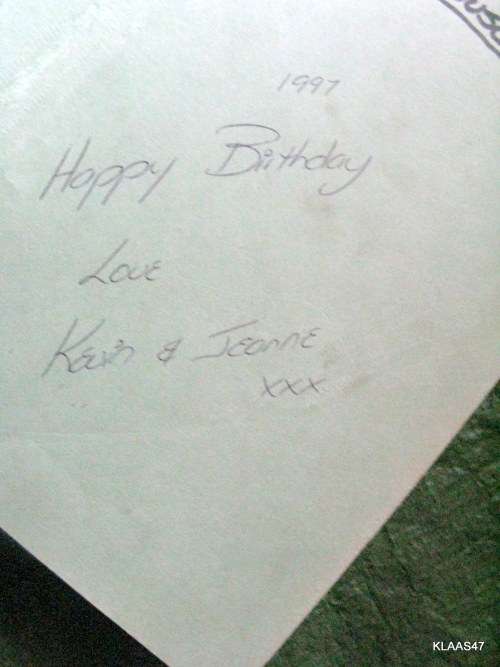 1997
Happy Birthday
Love
Kevin & Jeanne
xxx
KLAAS47